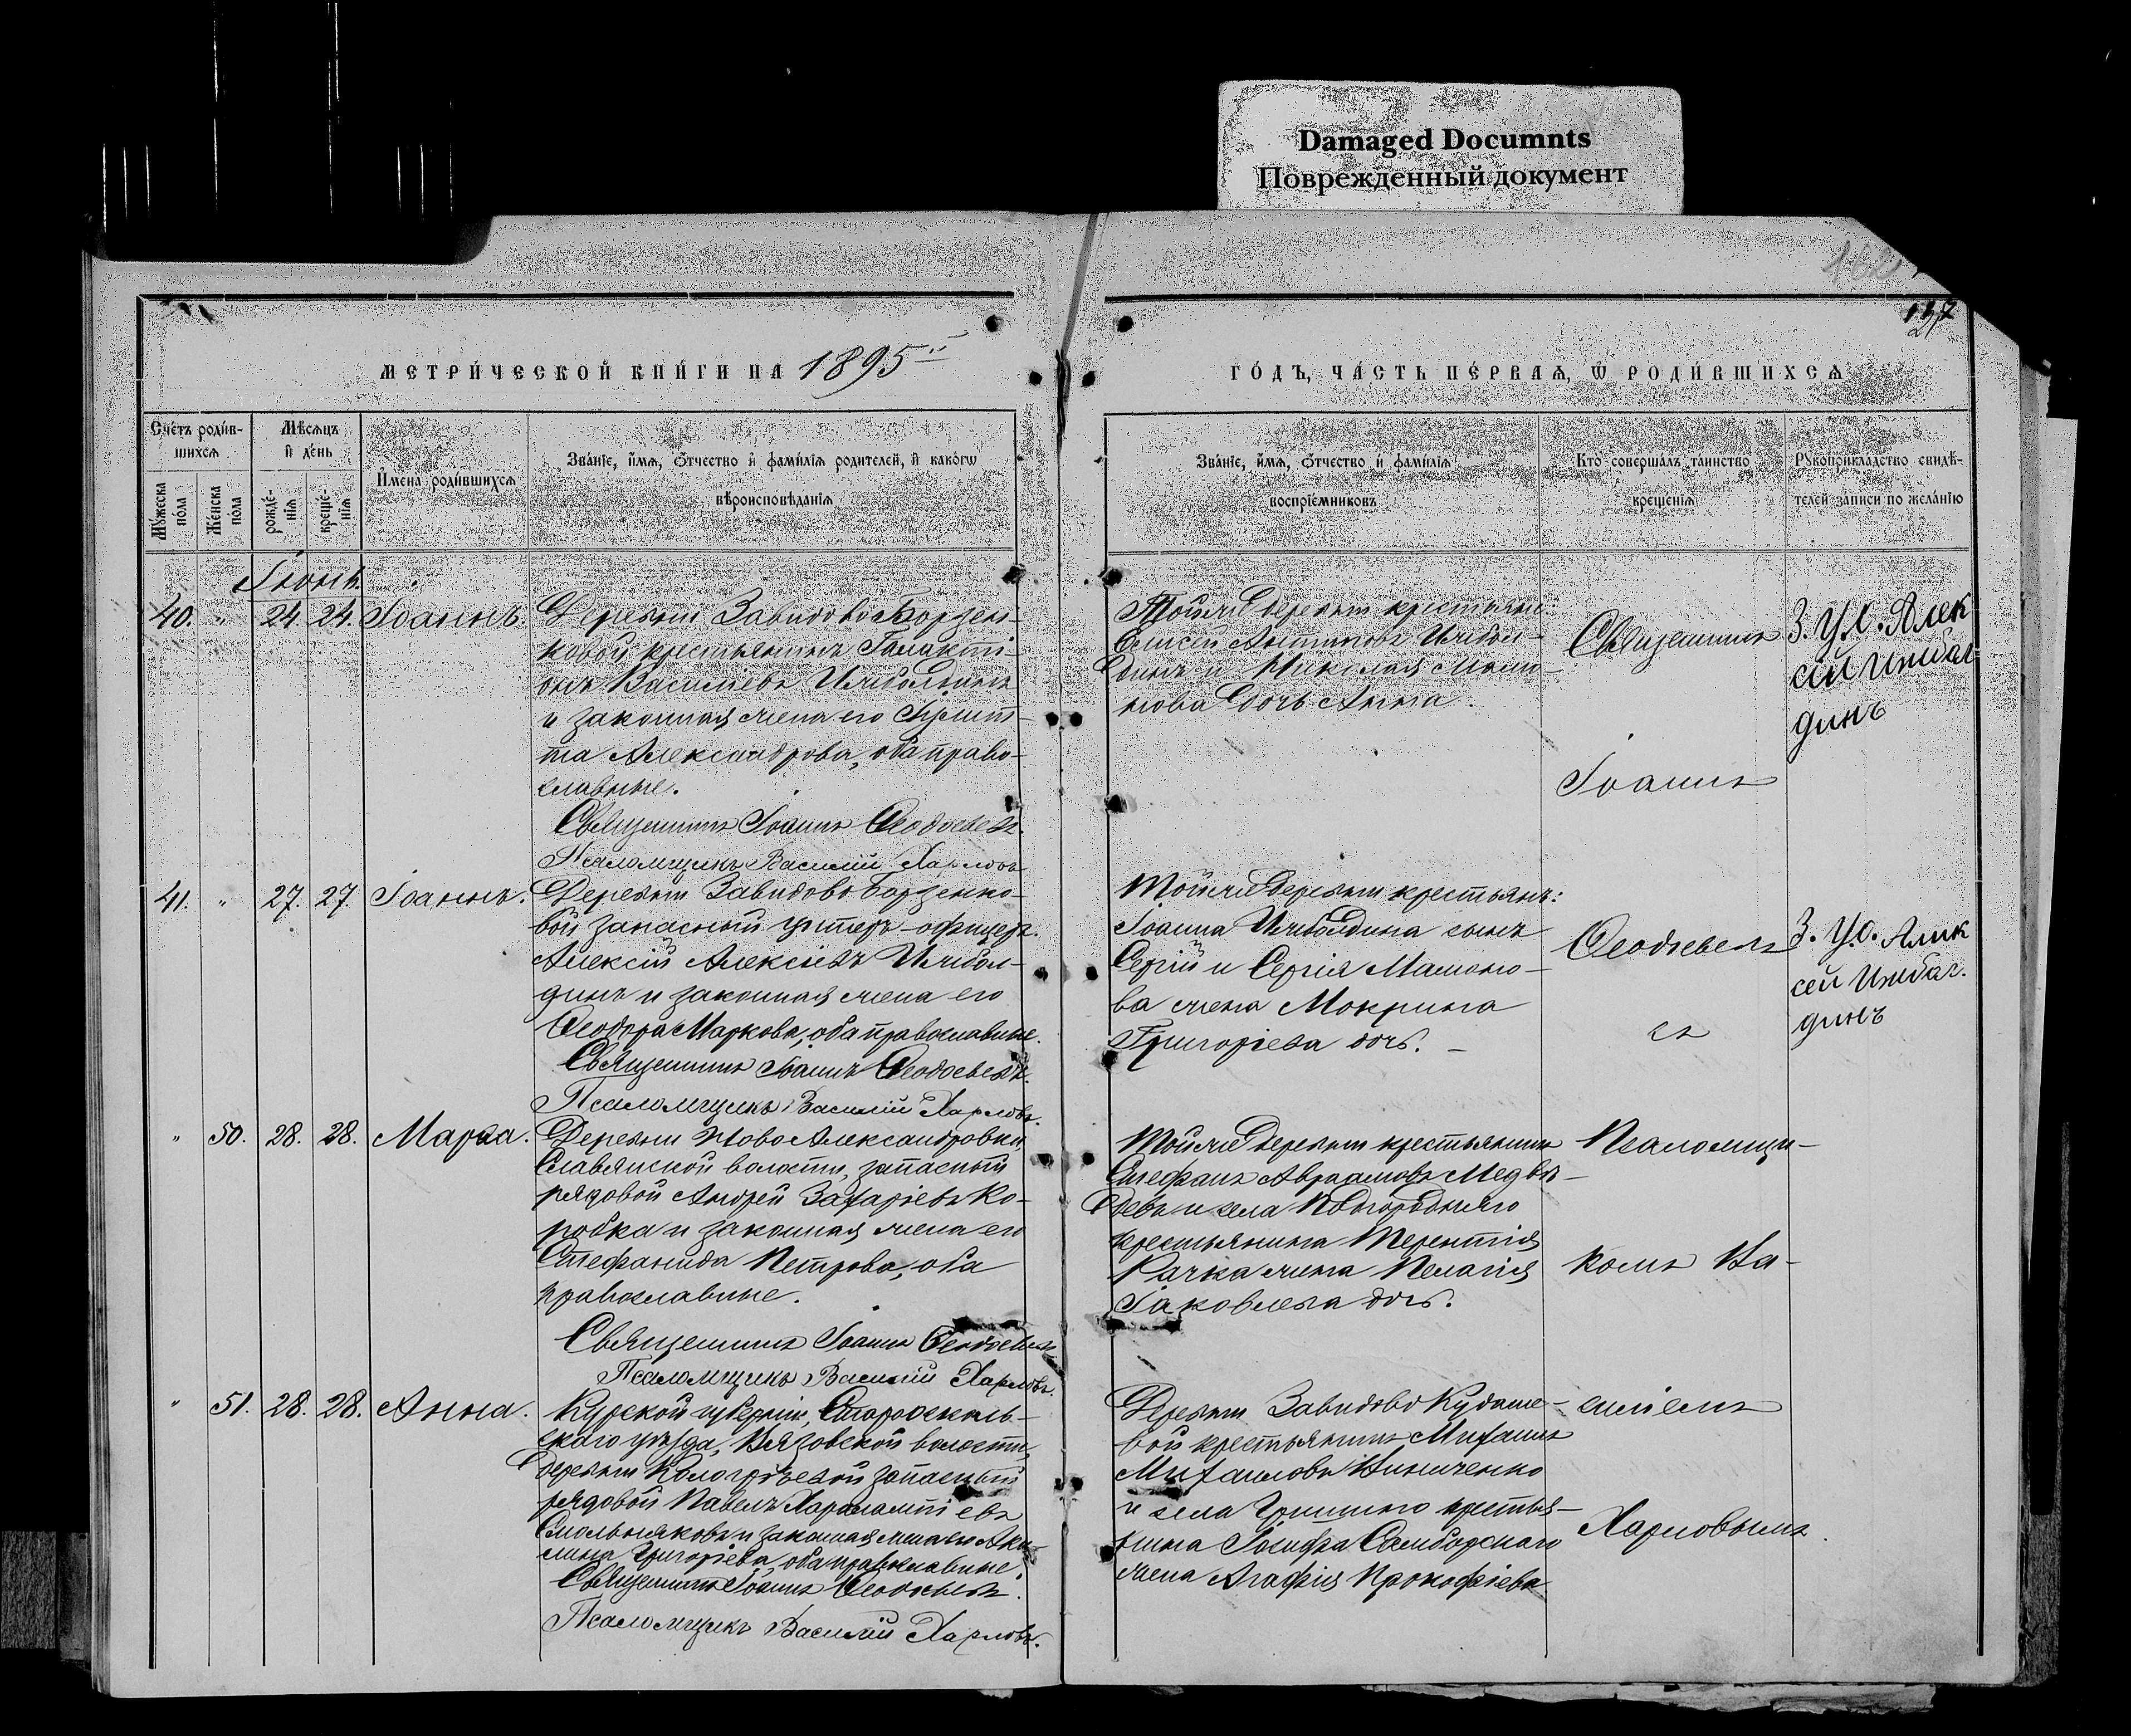 Damaged Documnts
Поврежденный документ
162
157
МЕТРИ́ЧЕСКОЙ КНИ́ГИ НА 1895ії
ГО́ДЪ, ЧА́СТЬ ПЕ́РВАЯ, Ѡ РОДИ́ВШИХСЯ
Сче́тъ роди́в-
шихся
Му́жеска
по́ла
Же́нска
по́ла
Мѣ́сяцъ
и҆ де́нь
рожде́-
нїя
креще́-
нїя
И҆мена̀ роди́вшихся
Зва́нїе, и҆́мя, ѻ҆́тчество и҆ фами́лїя родителей, и҆ како́гѡ
вѣроисповѣ́данїя
Зва́нїе, и҆́мя, ѻ҆́тчество и҆ фами́лїя
воспрїе́мниковъ
Кто̀ соверша́лъ та́инство
креще́нїя
Рꙋкоприкла́дство свидѣ́-
телей за́писи по жела́нїю
Іюнь.
40. " 24. 24. Іоаннъ.
Деревни Завидово Борзен-
ковой крестьянинъ Галакті-
онъ Васильевъ Ижболдинъ
и законная жена его
та Александрова, оба право-
славные.
Священникъ Іоаннъ Ѳеодосьевъ.
Псаломщикъ Василій Харловъ.
Той же деревни крестьяни:
Елисей Антиповъ Ижбол-
динъ и Николая Мамо-
нова дочь Анна.
Священникъ
Іоаннъ
З. У. О. Алек
сѣй Ижбал
динъ
41. " 27. 27. Іоаннъ.
Деревни Завидово Борзенко-
вой запасный унтеръ-офицеръ
Алексій Алексіевъ Ижбол-
динъ и законная жена его
Ѳеодора Маркова, оба православные.
Священникъ Іоаннъ Ѳеодосьевъ.
Псаломщикъ Василій Харловъ.
Той же деревни крестьянъ:
Іоанна Ижболдина сынъ
Сергій и Сергія Мамоно-
ва жена Мокрина
Григоріева дочь.
Ѳеодосьевъ
съ
З. У. О. Алик
сей Ижбал.
динъ
" 50. 28. 28. Марѳа.
Деревни Ново Александровки,
Славянской волости, запасный
рядовой Андрей Захаріевъ Ко-
робка и законная жена его
Стефанида Петрова, оба
православные.
Священникъ Іоаннъ Ѳеодосьевъ
Псаломщикъ Василій Харловъ.
Той же деревни крестьянинъ
Стефанъ Авраамовъ Медвѣ-
девъ и села
крестьянина Терентія
Рачка жена Пелагія
Іаковлева дочь.
Псаломщи-
комъ Ва-
" 51. 28. 28. Анна.
Курской губерніи, Старооскель-
скаго уѣзда, Вязовской волости,
деревни запасный
рядовой Павелъ Харалампіевъ
Смольняковъ и законная жена его Аки-
лина Григоріева, оба православные.
Священникъ Іоаннъ Ѳеодосьевъ.
Псаломщикъ Василій Харловъ.
Деревни Завидово Кудаше-
вой крестьянинъ Михаилъ
Михаиловъ Ниниченко
и села Гришино крестья-
нина Іосифа Самборскаго
жена Агафія Прокофіева
силіемъ
Харловымъ.